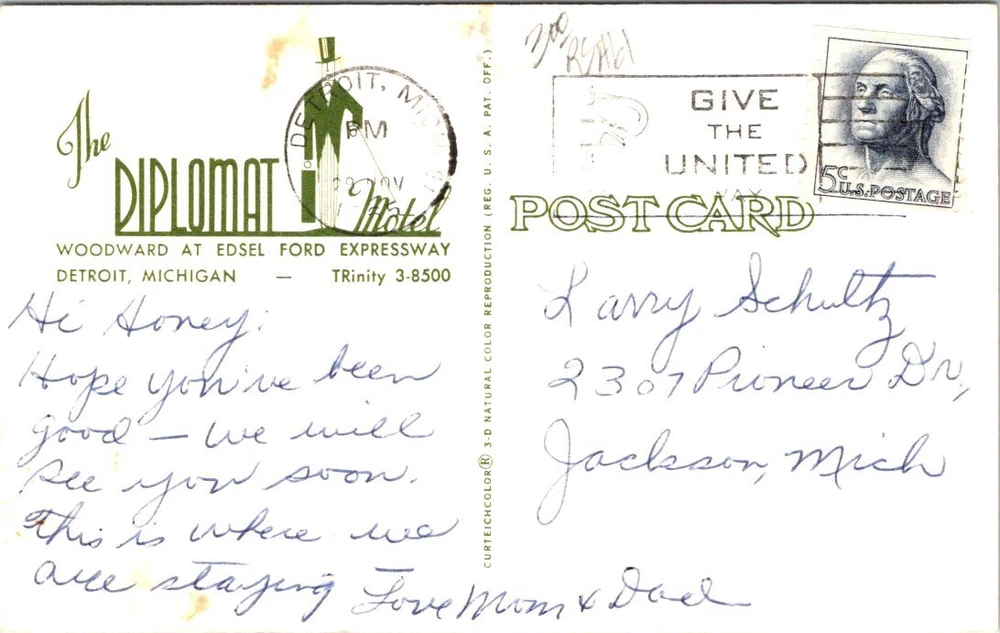 The
DIPLOMAT
Motel
WOODWARD AT EDSEL FORD EXPRESSWAY
DETROIT, MICHIGAN — TRinity 3-8500
Hi Honey:
Hope you've been
good — we will
see you soon.
This is where we
are staying
Love Mom & Dad
CURTEICHCOLOR® 3-D NATURAL COLOR REPRODUCTION (REG. U. S. A. PAT. OFF.)
DETROIT, MICH
PM
NOV
300
GIVE
THE
UNITED
WAY
5c U.S. POSTAGE
POST CARD
Larry Schultz
2307 Pioneer Dr,
Jackson, Mich